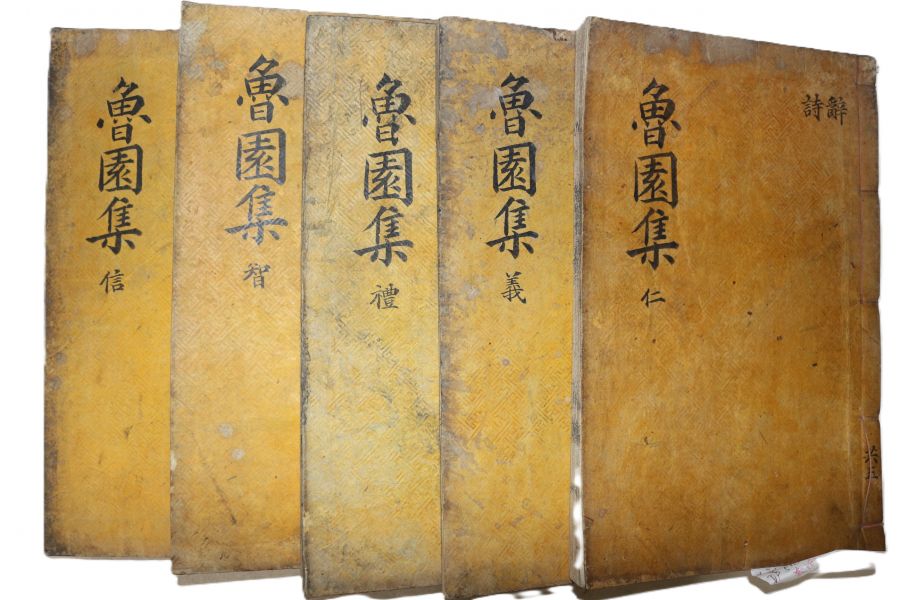 共五
辭
詩
魯園集 仁
魯園集 義
魯園集 禮
魯園集 智
魯園集 信